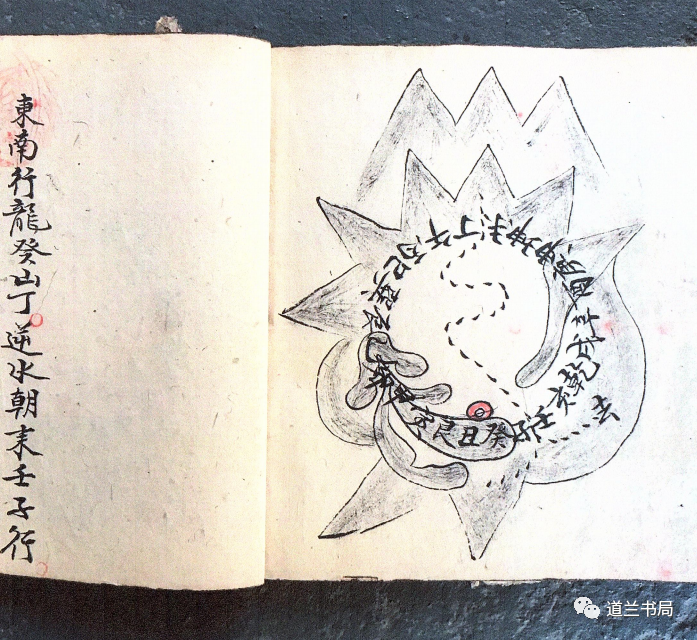 東南行龍癸山丁逆水朝耒壬子行
癸丑艮寅甲卯乙辰巽巳丙午丁未坤申庚酉辛戌乾亥壬子
去
道兰书局